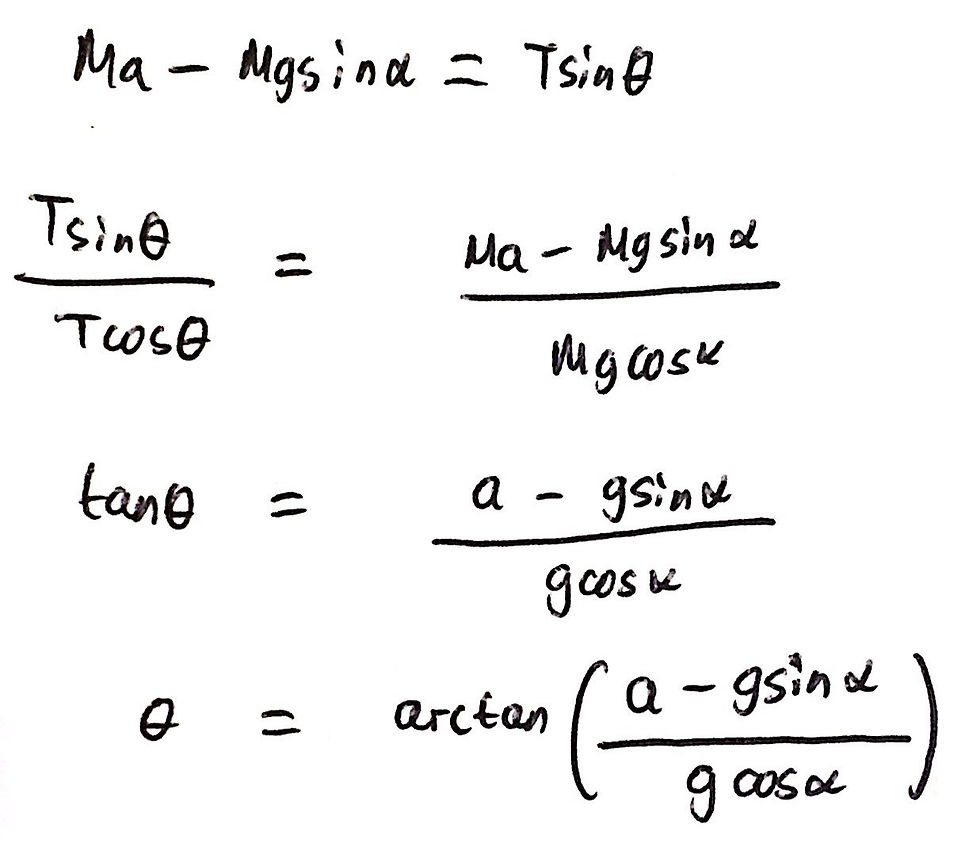 Ma - Mgsinα = Tsinθ
Tsinθ / Tcosθ = Ma - Mgsinα / Mgcosα
tanθ = a - gsinα / gcosα
θ = arctan(a - gsinα / gcosα)